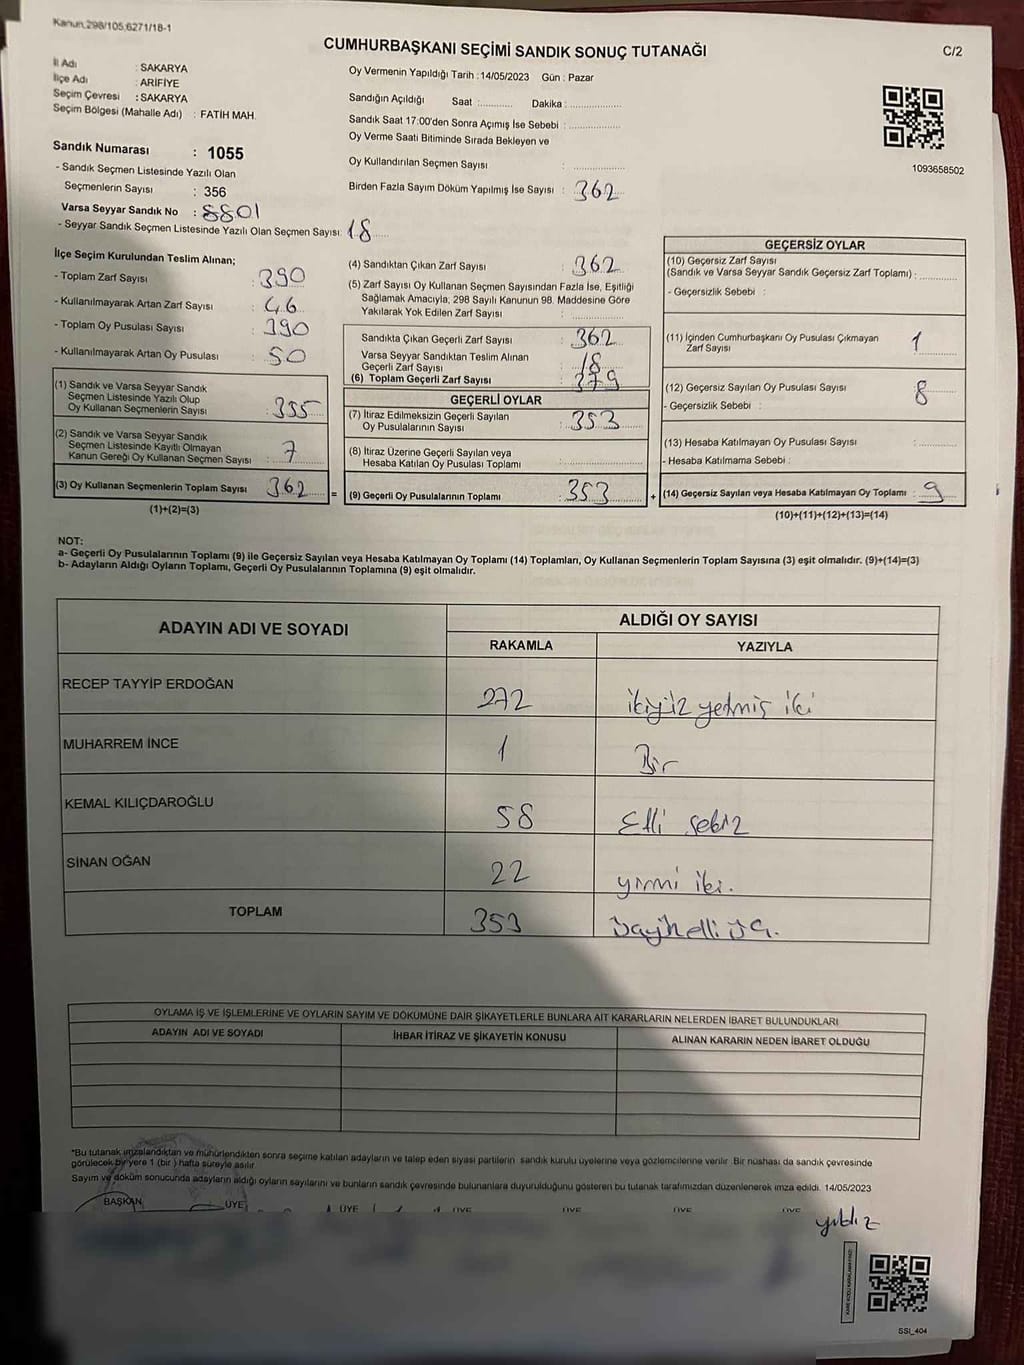 Kanun,298/105,6271/18-1
CUMHURBAŞKANI SEÇİMİ SANDIK SONUÇ TUTANAĞI
C/2
İl Adı : SAKARYA
İlçe Adı : ARİFİYE
Seçim Çevresi : SAKARYA
Seçim Bölgesi (Mahalle Adı) : FATİH MAH.
Oy Vermenin Yapıldığı Tarih :14/05/2023 Gün : Pazar
Sandığın Açıldığı Saat :............ Dakika :...................
Sandık Saat 17:00'den Sonra Açımış İse Sebebi :...................
Oy Verme Saati Bitiminde Sırada Bekleyen ve
Oy Kullandırılan Seçmen Sayısı :...................
Birden Fazla Sayım Döküm Yapılmış İse Sayısı : 362
1093658502
Sandık Numarası : 1055
- Sandık Seçmen Listesinde Yazılı Olan
Seçmenlerin Sayısı : 356
Varsa Seyyar Sandık No : 8801
- Seyyar Sandık Seçmen Listesinde Yazılı Olan Seçmen Sayısı: 18
İlçe Seçim Kurulundan Teslim Alınan;
- Toplam Zarf Sayısı : 390
- Kullanılmayarak Artan Zarf Sayısı : 46
- Toplam Oy Pusulası Sayısı : 390
- Kullanılmayarak Artan Oy Pusulası : 50
(1) Sandık ve Varsa Seyyar Sandık
Seçmen Listesinde Yazılı Olup
Oy Kullanan Seçmenlerin Sayısı : 355
(2) Sandık ve Varsa Seyyar Sandık
Seçmen Listesinde Kayıtlı Olmayan
Kanun Gereği Oy Kullanan Seçmen Sayısı : 7
(3) Oy Kullanan Seçmenlerin Toplam Sayısı 362
(1)+(2)=(3)
(4) Sandıktan Çıkan Zarf Sayısı : 362
(5) Zarf Sayısı Oy Kullanan Seçmen Sayısından Fazla İse, Eşitliği
Sağlamak Amacıyla, 298 Sayılı Kanunun 98. Maddesine Göre
Yakılarak Yok Edilen Zarf Sayısı :...................
Sandıkta Çıkan Geçerli Zarf Sayısı : 362
Varsa Seyyar Sandıktan Teslim Alınan
Geçerli Zarf Sayısı : 18
(6) Toplam Geçerli Zarf Sayısı : 379
GEÇERLİ OYLAR
(7) İtiraz Edilmeksizin Geçerli Sayılan
Oy Pusulalarının Sayısı : 353
(8) İtiraz Üzerine Geçerli Sayılan veya
Hesaba Katılan Oy Pusulası Toplamı :...................
= (9) Geçerli Oy Pusulalarının Toplamı : 353
GEÇERSİZ OYLAR
(10) Geçersiz Zarf Sayısı
(Sandık ve Varsa Seyyar Sandık Geçersiz Zarf Toplamı) :............
- Geçersizlik Sebebi :
(11) İçinden Cumhurbaşkanı Oy Pusulası Çıkmayan
Zarf Sayısı : 1
(12) Geçersiz Sayılan Oy Pusulası Sayısı : 8
- Geçersizlik Sebebi :
(13) Hesaba Katılmayan Oy Pusulası Sayısı :............
- Hesaba Katılmama Sebebi :
+ (14) Geçersiz Sayılan veya Hesaba Katılmayan Oy Toplamı : 9
(10)+(11)+(12)+(13)=(14)
NOT:
a- Geçerli Oy Pusulalarının Toplamı (9) ile Geçersiz Sayılan veya Hesaba Katılmayan Oy Toplamı (14) Toplamları, Oy Kullanan Seçmenlerin Toplam Sayısına (3) eşit olmalıdır. (9)+(14)=(3)
b- Adayların Aldığı Oyların Toplamı, Geçerli Oy Pusulalarının Toplamına (9) eşit olmalıdır.
ADAYIN ADI VE SOYADI
ALDIĞI OY SAYISI
RAKAMLA YAZIYLA
RECEP TAYYİP ERDOĞAN 272 ikiyüz yetmiş iki
MUHARREM İNCE 1 Bir
KEMAL KILIÇDAROĞLU 58 Elli sekiz
SİNAN OĞAN 22 yirmi iki.
TOPLAM 353
OYLAMA İŞ VE İŞLEMLERİNE VE OYLARIN SAYIM VE DÖKÜMÜNE DAİR ŞİKAYETLERLE BUNLARA AİT KARARLARIN NELERDEN İBARET BULUNDUKLARI
ADAYIN ADI VE SOYADI İHBAR İTİRAZ VE ŞİKAYETİN KONUSU ALINAN KARARIN NEDEN İBARET OLDUĞU
*Bu tutanak imzalandıktan ve mühürlendikten sonra seçime katılan adayların ve talep eden siyasi partilerin sandık kurulu üyelerine veya gözlemcilerine verilir. Bir nüshası da sandık çevresinde
görülecek bir yere 1 (bir ) hafta süreyle asılır.
Sayım ve döküm sonucunda adayların aldığı oyların sayılarını ve bunların sandık çevresinde bulunanlara duyurulduğunu gösteren bu tutanak tarafımızdan düzenlenerek imza edildi. 14/05/2023
BAŞKAN ÜYE ÜYE ÜYE ÜYE ÜYE ÜYE
yıldız
SSI_404